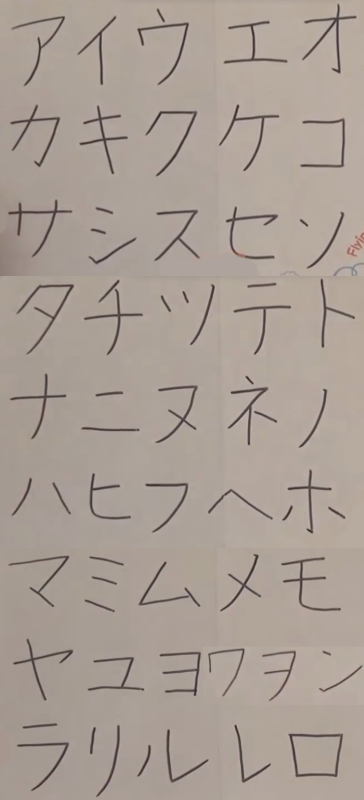 アイウエオ
カキクケコ
サシスセソ
タチツテト
ナニヌネノ
ハヒフヘホ
マミムメモ
ヤユヨワヲン
ラリルレロ